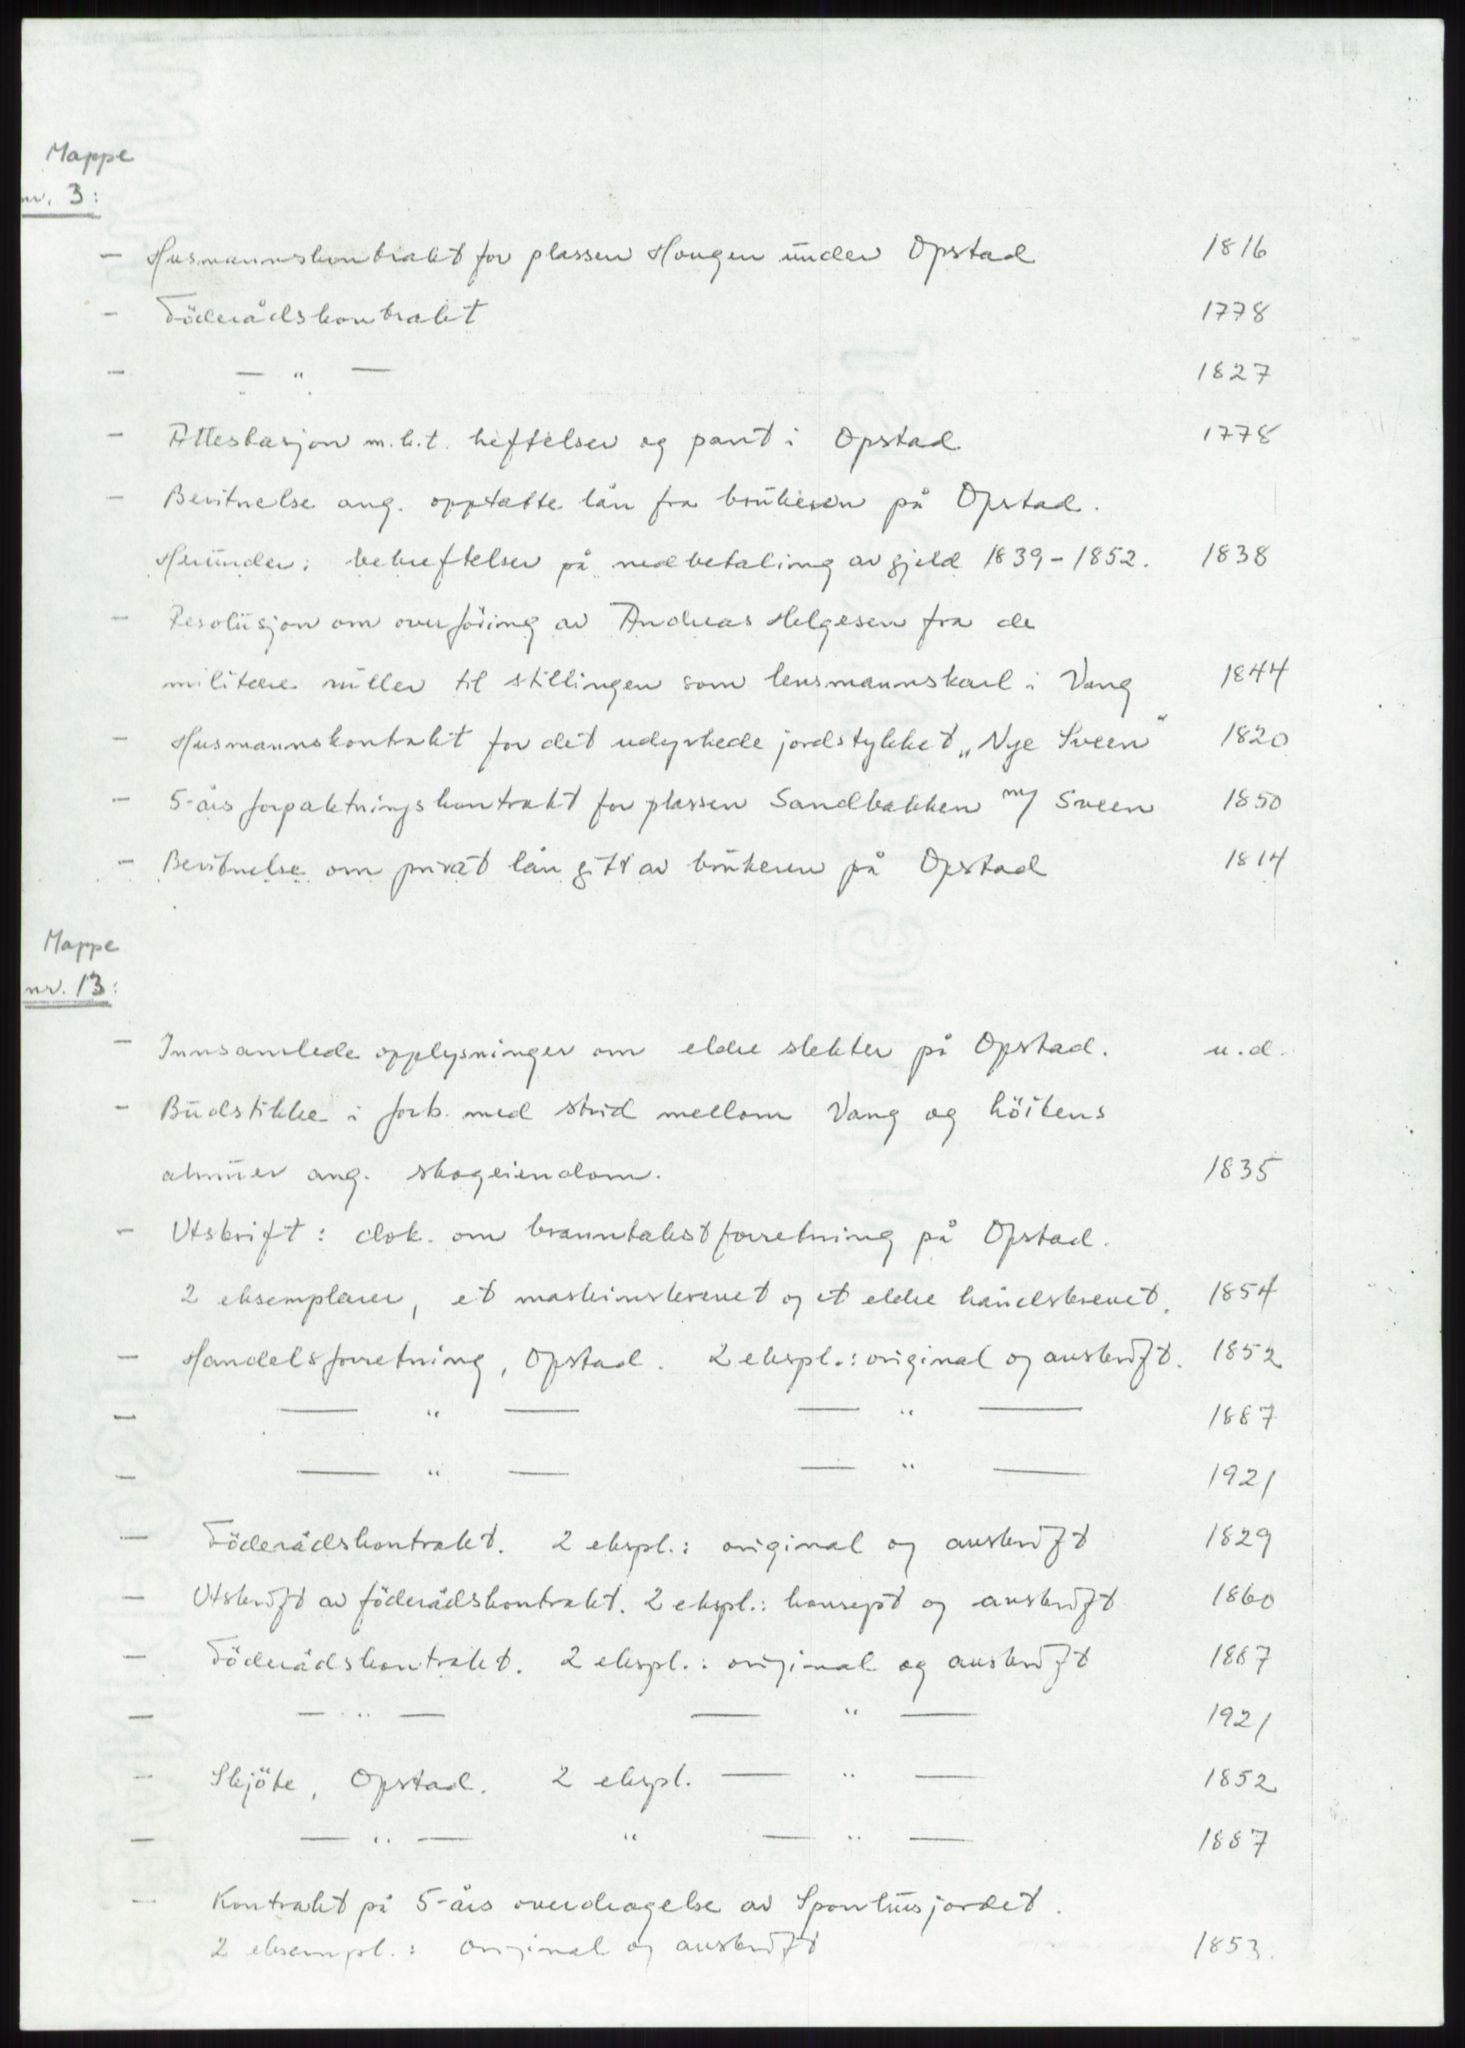 Mappe
nr. 3:
- Husmannskontrakt for plassen Hougen under Opstad 1816
- Föderådskontrakt 1778
- — " — 1827
- Attestasjon m.h.t. heftelser og pant i Opstad 1778
- Bevitnelse ang. opptatte lån fra brukeren på Opstad.
Herunder: bekreftelser på nedbetaling av gjeld 1839-1852. 1838
- Resolusjon om overföring av Andreas Helgesen fra de
militære ruller til stillingen som lensmannskarl i Vang 1844
- Husmannskontrakt for det udyrkede jordstykket „Nye Sveen“ 1820
- 5-års forpaktningskontrakt for plassen Sandbakken m/ Sveen 1850
- Bevitnelse om privat lån gitt av brukeren på Opstad 1814
Mappe
nr. 13:
- Innsamlede opplysninger om eldre slekter på Opstad. u.d.
- Budstikke i forb. med strid mellom Vang og Löitens
almuer ang. skogeiendom. 1835
- Utskrift: dok. om branntakstforretning på Opstad.
2 eksemplarer, et maskinskrevet og et eldre håndskrevet. 1854
- Handelsforretning, Opstad. 2 ekspl.: original og avskrift. 1852
- — " — — " — 1887
- — " — — " — 1921
- Föderådskontrakt. 2 ekspl.: original og avskrift 1829
- Utskrift av föderådskontrakt. 2 ekspl.: konsept og avskrift 1860
- Föderådskontrakt. 2 ekspl.: original og avskrift 1887
- — " — — " — 1921
- Skjöte, Opstad. 2 ekspl. — " — 1852
- — " — " — " — 1887
- Kontrakt på 5-års overdragelse av Sponlusjordet.
2 eksempl.: original og avskrift 1853.